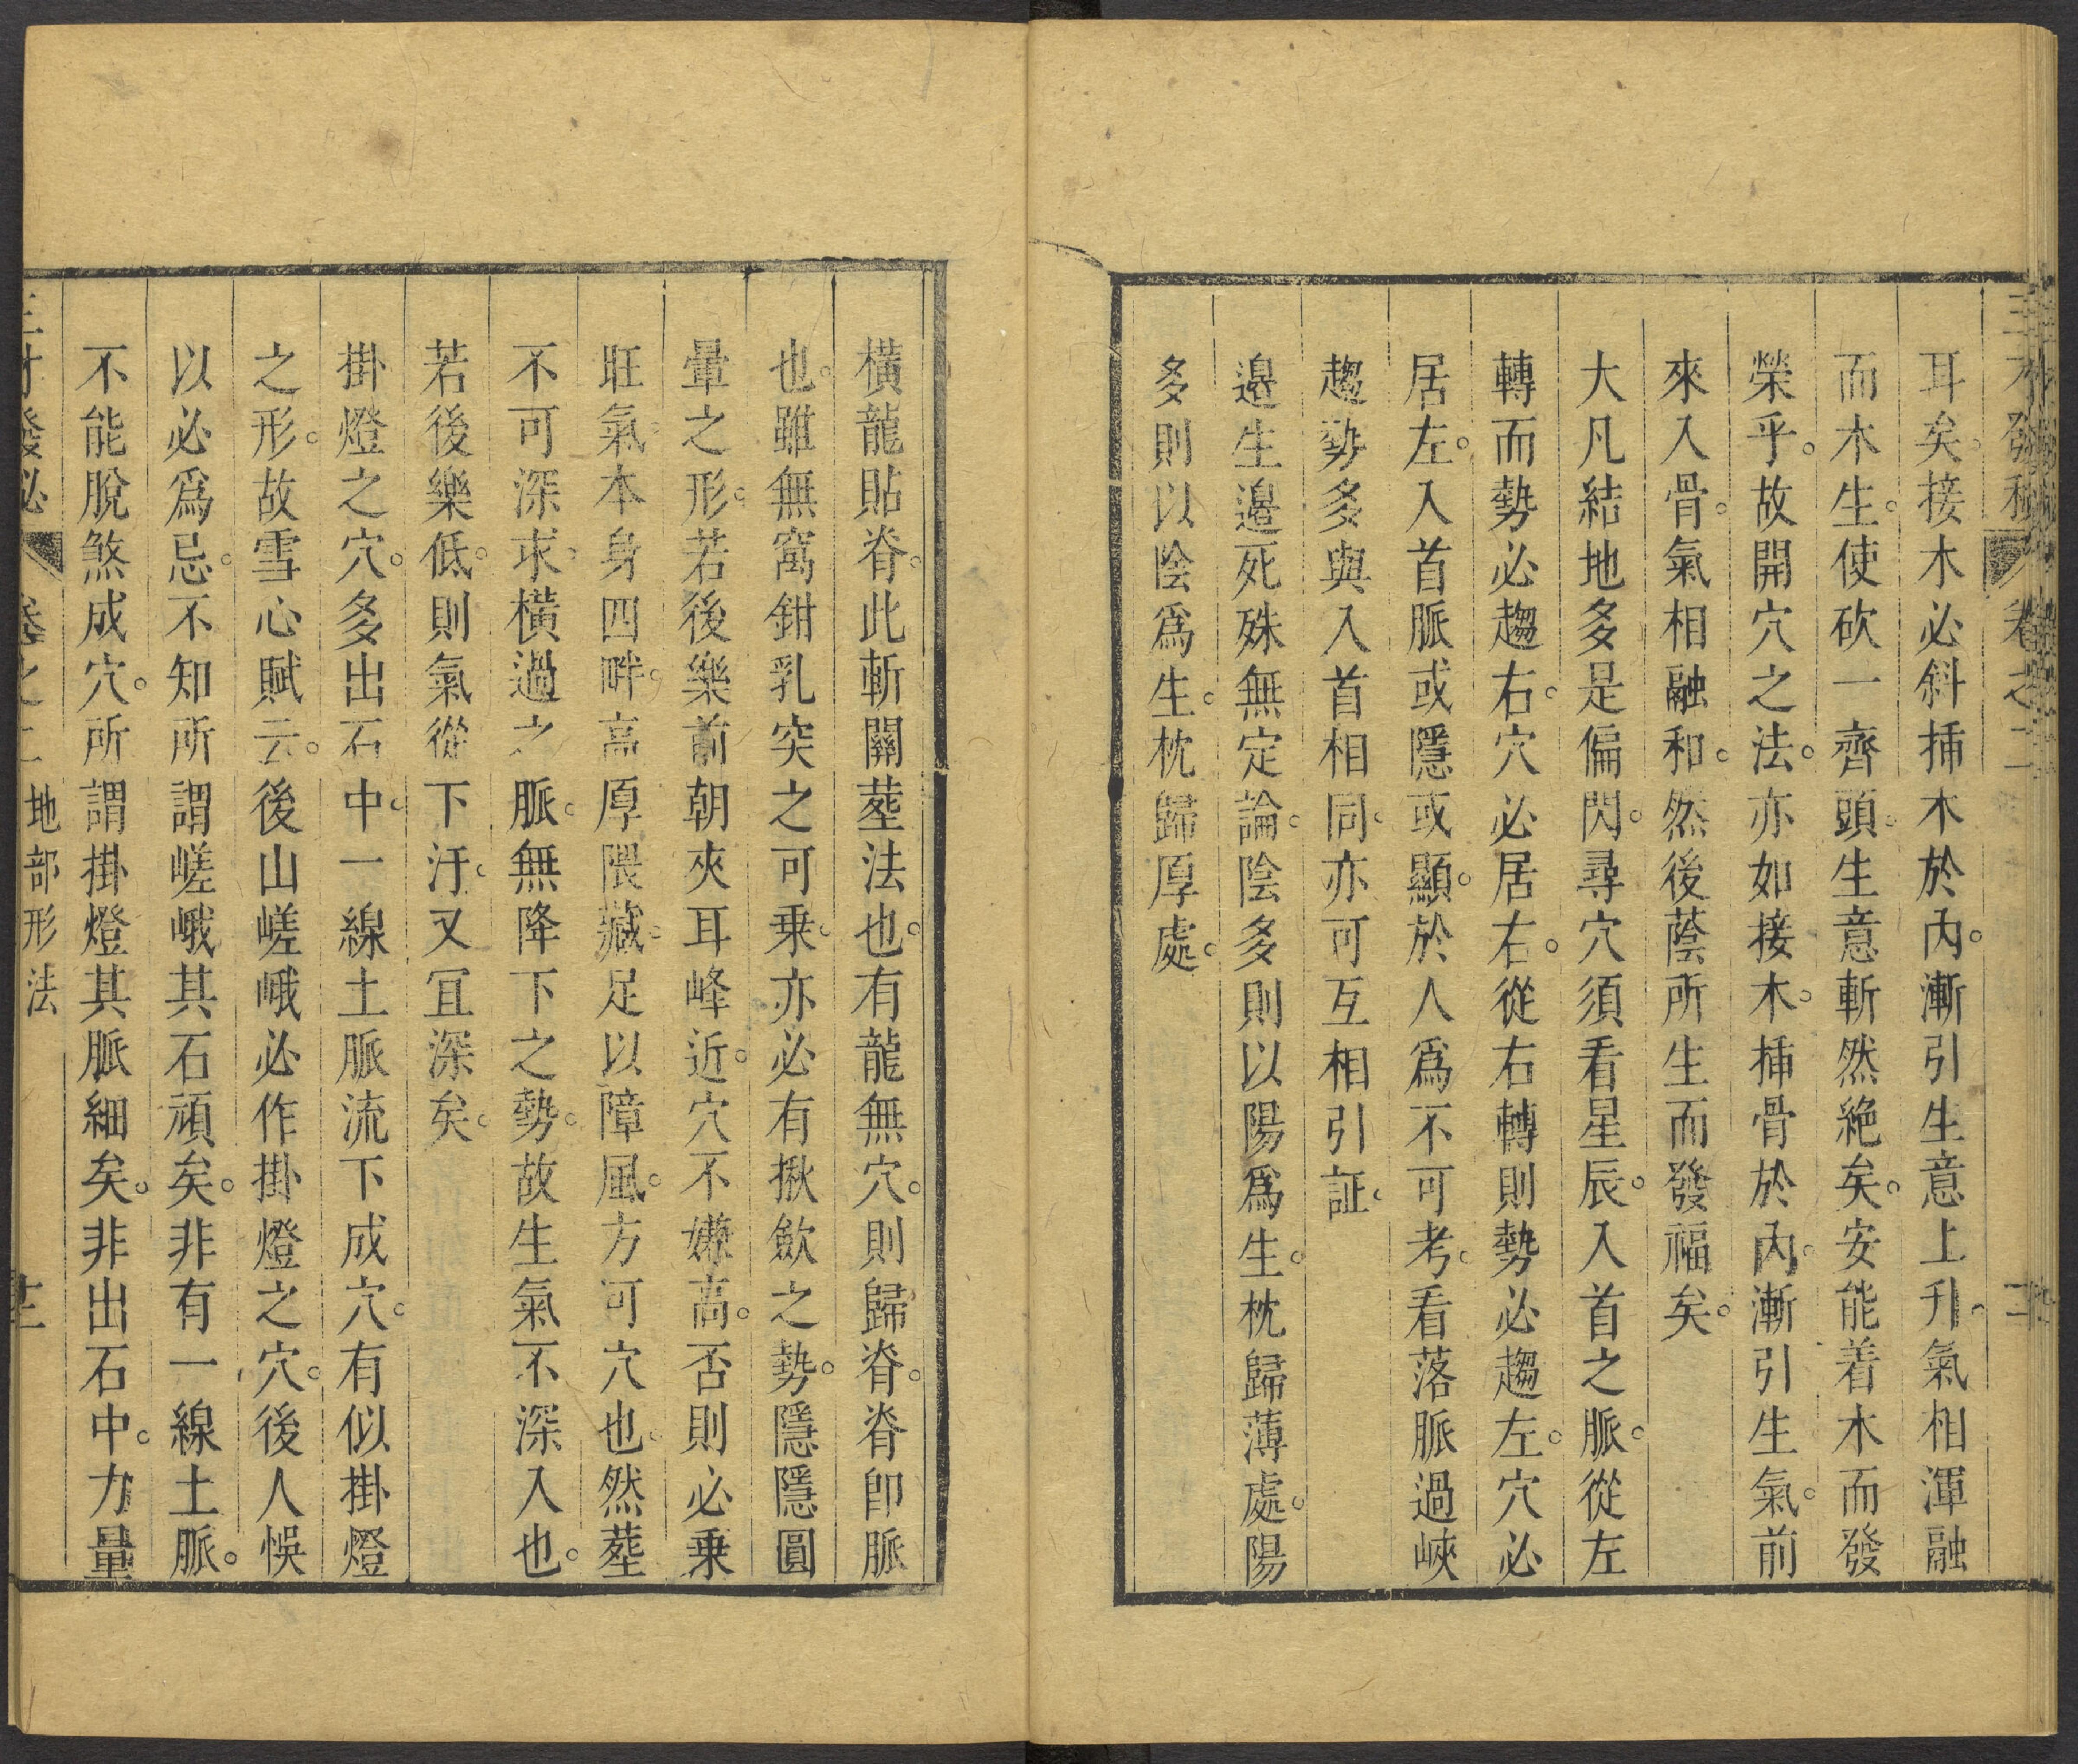 耳矣。接木必斜插木於內。漸引生意上升。氣相渾融
而木生。使砍一齊頭。生意斬然絶矣。安能着木而發
榮乎。故開穴之法。亦如接木。木插骨於內。漸引生氣。前
來入骨。氣相融和。然後蔭所生而發福矣。
大凡結地多是偏閃。尋穴須看星辰。入首之脈。從左
轉而勢必趨右。穴必居右。從右轉則勢必趨左。穴必
居左。入首脈或隱或顯。於人爲不可考。看落脈過峽
趨勢多與入首相同。亦可互相引証。
邉生邉死殊無定論。陰多則以陽爲生。枕歸薄處。陽
多則以陰爲生。枕歸厚處。
橫龍貼脊。此斬關塟法也。有龍無穴。則歸脊。脊卽脈
也。雖無窩鉗乳突之可乗。亦必有揪歛之勢。隱隱圓
暈之形。若後樂前朝夾耳峰近。穴不嫌高。否則必乗
旺氣。本身四畔。高厚隈藏。足以障風。方可穴也。然塟
不可深求。橫過之脈。無降下之勢。故生氣不深入也。
若後樂低。則氣從下汙。又宜深矣。
掛燈之穴。多出石中。一線土脈流下成穴。有似掛燈
之形。故雪心賦云。後山嵯峨必作掛燈之穴。後人悞
以必爲忌。不知所謂嵯峨其石頑矣。非有一線土脈。
不能脫煞成穴。所謂掛燈其脈細矣。非出石中。力量
三才發秘 卷之二 地部形法